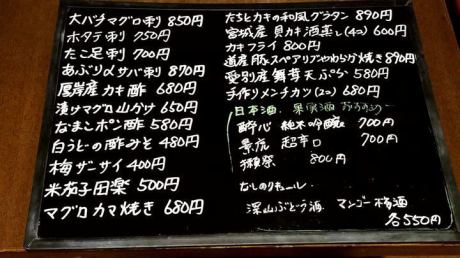 大バチマグロ刺 850円
ホタテ刺 750円
たこ足刺 700円
あぶり〆サバ刺 870円
厚岸産 カキ酢 680円
漬けマグロ山かけ 650円
なまこポン酢 580円
白うどの酢みそ 480円
梅ザーサイ 400円
米茄子田楽 500円
マグロ カマ焼き 680円
たちとカキの和風グラタン 890円
宮城産 貝カキ酒蒸し(4コ) 600円
カキフライ 800円
道産豚スペアリブやわらか焼き 890円
愛別産 舞茸天ぷら 580円
手作りメンチカツ(2コ) 680円
日本酒 果実酒
酔心 純米吟醸 700円
景虎 超辛口 700円
獺祭 800円
なしのリキュール
深山ぶどう酒 マンゴー梅酒
各550円